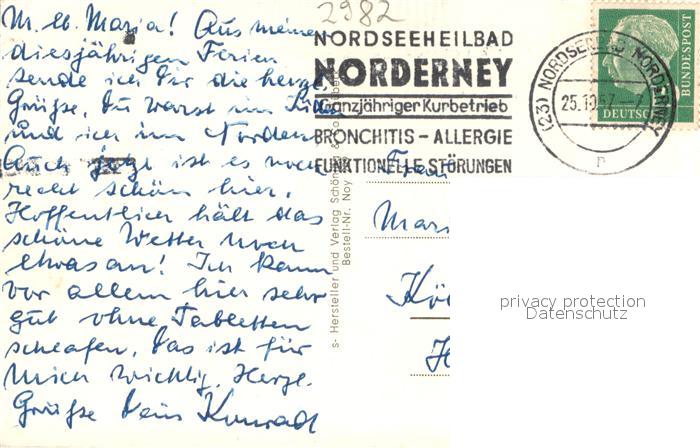 M. lb. Maria! Aus meinen
diesjährigen Ferien
sende ich Dir die herzl.
Grüße. Du warst im Süden
und ich im Norden
Auch jetzt ist es noch
recht schön hier.
Hoffentlich hält das
schöne Wetter noch
etwas an! Ich kann
vor allem hier sehr
gut ohne Tabletten
schlafen. Das ist für
mich wichtig. Herzl.
Grüße Dein Konrad
2982
NORDSEEHEILBAD
NORDERNEY
Ganzjähriger Kurbetrieb
BRONCHITIS - ALLERGIE
FUNKTIONELLE STÖRUNGEN
(23) NORDSEEBAD NORDERNEY
25.10.57
n
DEUTSCHE
BUNDESPOST
Hersteller und Verlag Schön
Bestell-Nr. Noy
Frau
Mari
Kö
H
privacy protection
Datenschutz